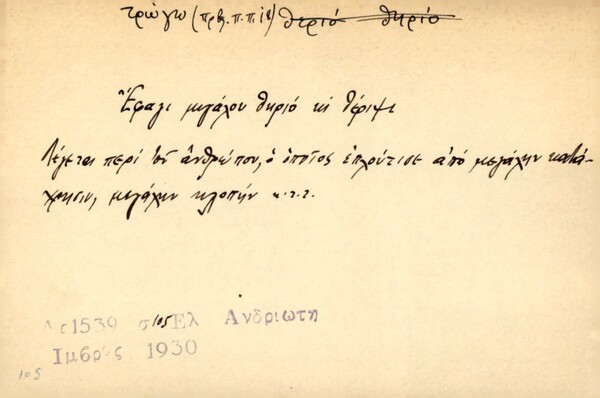 τρώγω (πρβ. π.π. ιβ) θεριό θηρίο
Ἔφαγι μιγάλου θηριό κὶ θέριψι
Λέγεται περὶ τοῦ ἀνθρώπου, ὁ ὁποῖος ἐπλούτισε ἀπό μεγάλην κατά-
χρησιν, μεγάλην κλοπήν κ.τ.τ.
Λε1539 σ105 Ελ Ανδριωτη
Ιμβρος 1930
105